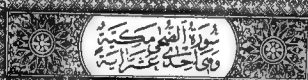 سُورَةُ الضُّحَى مَكِّيَّةٌ
وَهِيَ إِحْدَى عَشْرَةَ آيَةً